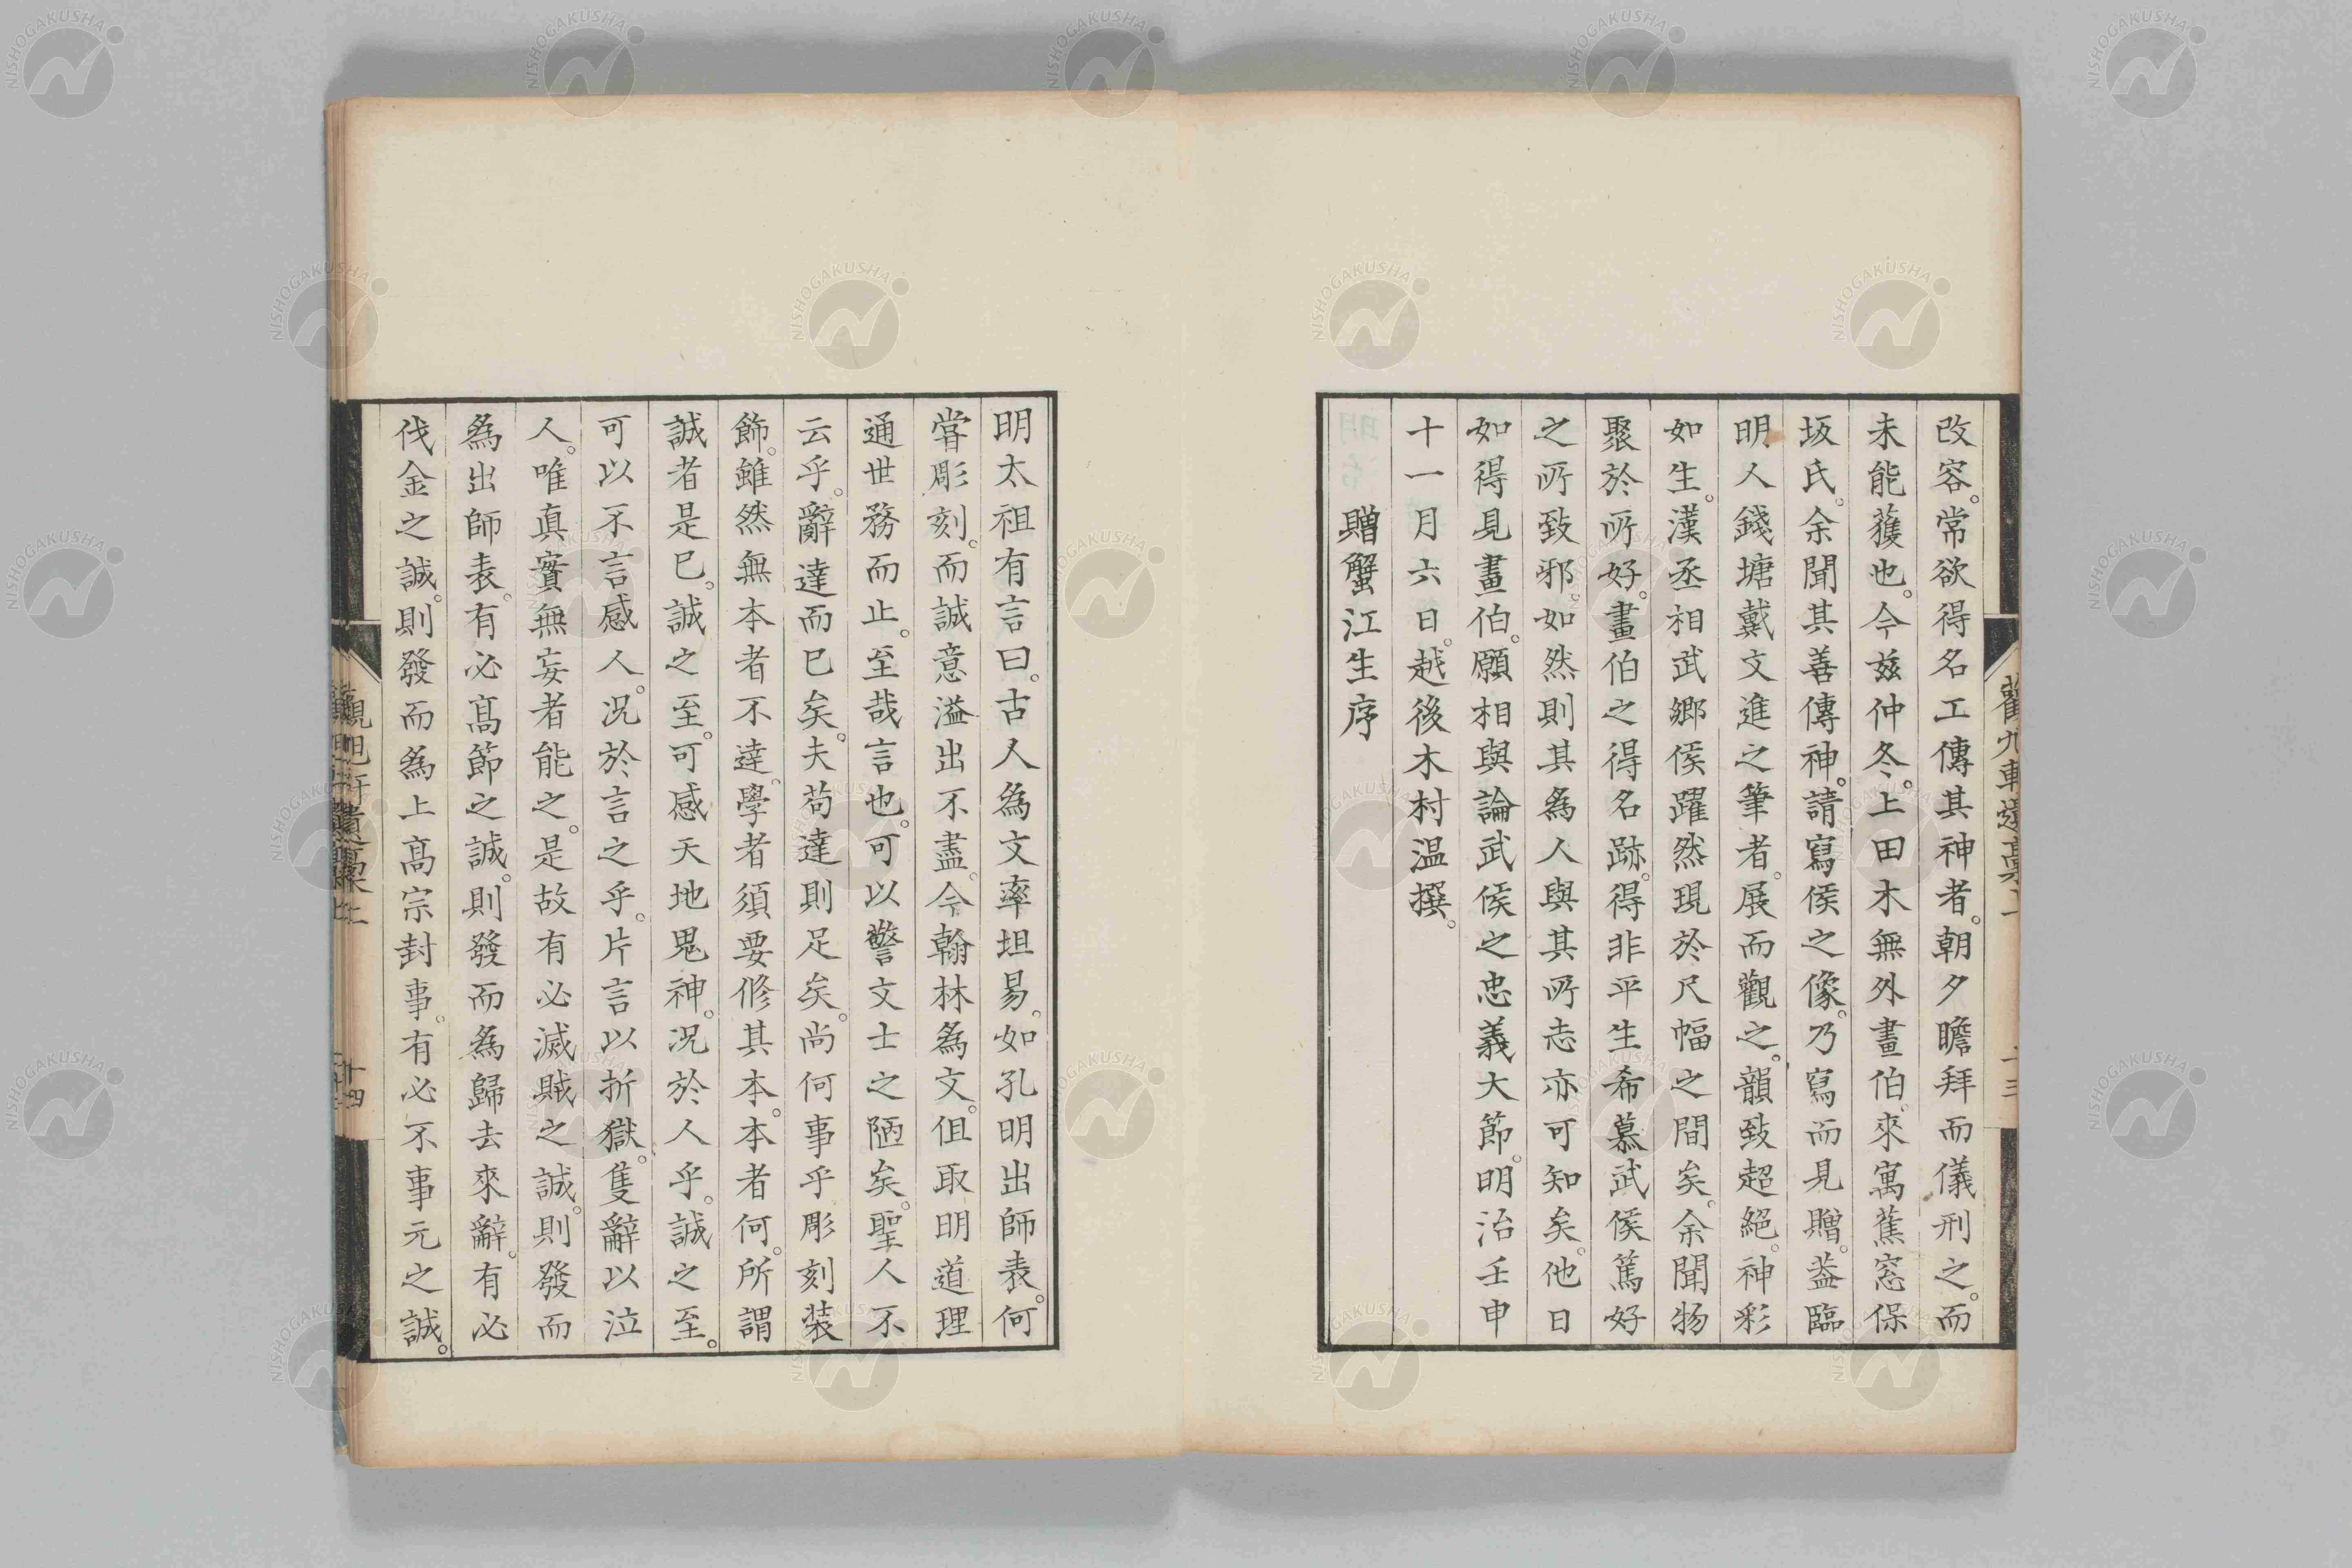 改容。常欲得名工傳其神者。朝夕瞻拜而儀刑之。而
未能獲也。今茲仲冬。上田木無外畫伯。來寓蕉窓保
坂氏。余聞其善傳神。請寫侯之像。乃寫而見贈。葢臨
明人錢塘戴文進之筆者。展而觀之。韻致超絕。神彩
如生。漢丞相武鄉侯躍然現於尺幅之間矣。余聞物
聚於所好。畫伯之得名跡。得非平生希慕武侯篤好
之所致邪。如然則其為人與其所志亦可知矣。他日
如得見畫伯。願相與論武侯之忠義大節。明治壬申
十一月六日。越後木村温撰。
贈蟹江生序
明太祖有言曰。古人為文率坦易。如孔明出師表。何
甞彫刻。而誠意溢出不盡。今翰林為文。但取明道理
通世務而止。至哉言也。可以警文士之陋矣。聖人不
云乎。辭達而已矣。夫苟達則足矣。尚何事乎彫刻裝
飾。雖然無本者不達。學者須要修其本。本者何。所謂
誠者是已。誠之至。可感天地鬼神。况於人乎。誠之至。
可以不言感人。况於言之乎。片言以折獄。隻辭以泣
人。唯真實無妄者能之。是故有必滅賊之誠。則發而
為出師表。有必高節之誠。則發而為歸去來辭。有必
伐金之誠。則發而為上高宗封事。有必不事元之誠。
觀旭軒遺稾上
十四